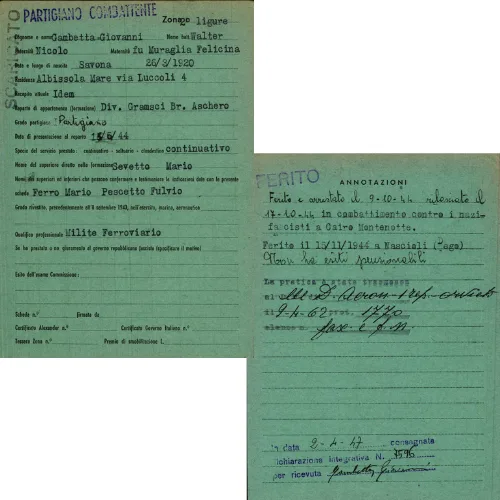 SCARICATO
PARTIGIANO COMBATTENTE
Zona ligure
Cognome e nome Gambetta Giovanni Nome batt. Walter
Paternità Nicolo Maternità fu Muraglia Felicina
Data e luogo di nascita Savona 26/3/1920
Residenza Albissola Mare via Luccoli 4
Recapito attuale Idem
Reparto di appartenenza (formazione) Div. Gramsci Br. Aschero
Grado partigiano Partigiano
Data di presentazione al reparto 15/6/44
Specie del servizio prestato: continuativo - saltuario - clandestino continuativo
Nome del superiore diretto nella formazione Sevetto Mario
Nomi dei superiori od inferiori che possono confermare e testimoniare le indicazioni date con la presente
scheda Ferro Mario Pescetto Fulvio
Grado rivestito, precedentemente all'8 settembre 1943, nell'esercito, marina, aeronautica
Qualifica professionale Milite Ferroviario
Se ha prestato o no giuramento al governo repubblicano fascista (specificare il motivo)
Esito dell'esame Commissione:
Scheda n.° firmata da
Certificato Alexander n.° Certificato Governo Italiano n.°
Tessera Zona n.° Premio di smobilitazione L.
FERITO
ANNOTAZIONI
Ferito e arrestato il 9-10-44 rilasciato il
17-10-44 in combattimento contro i nazi-
fascisti a Cairo Montenotte.
Ferito il 15/11/1944 a Nascioli (Mago)
Non ha esiti pensionabili
La pratica è stata trasmessa
al
il 9-4-62 prot. 1770
elenco n.
In data 2-4-47 consegnata
dichiarazione integrativa N. 7596
per ricevuta Gambetta Giovanni